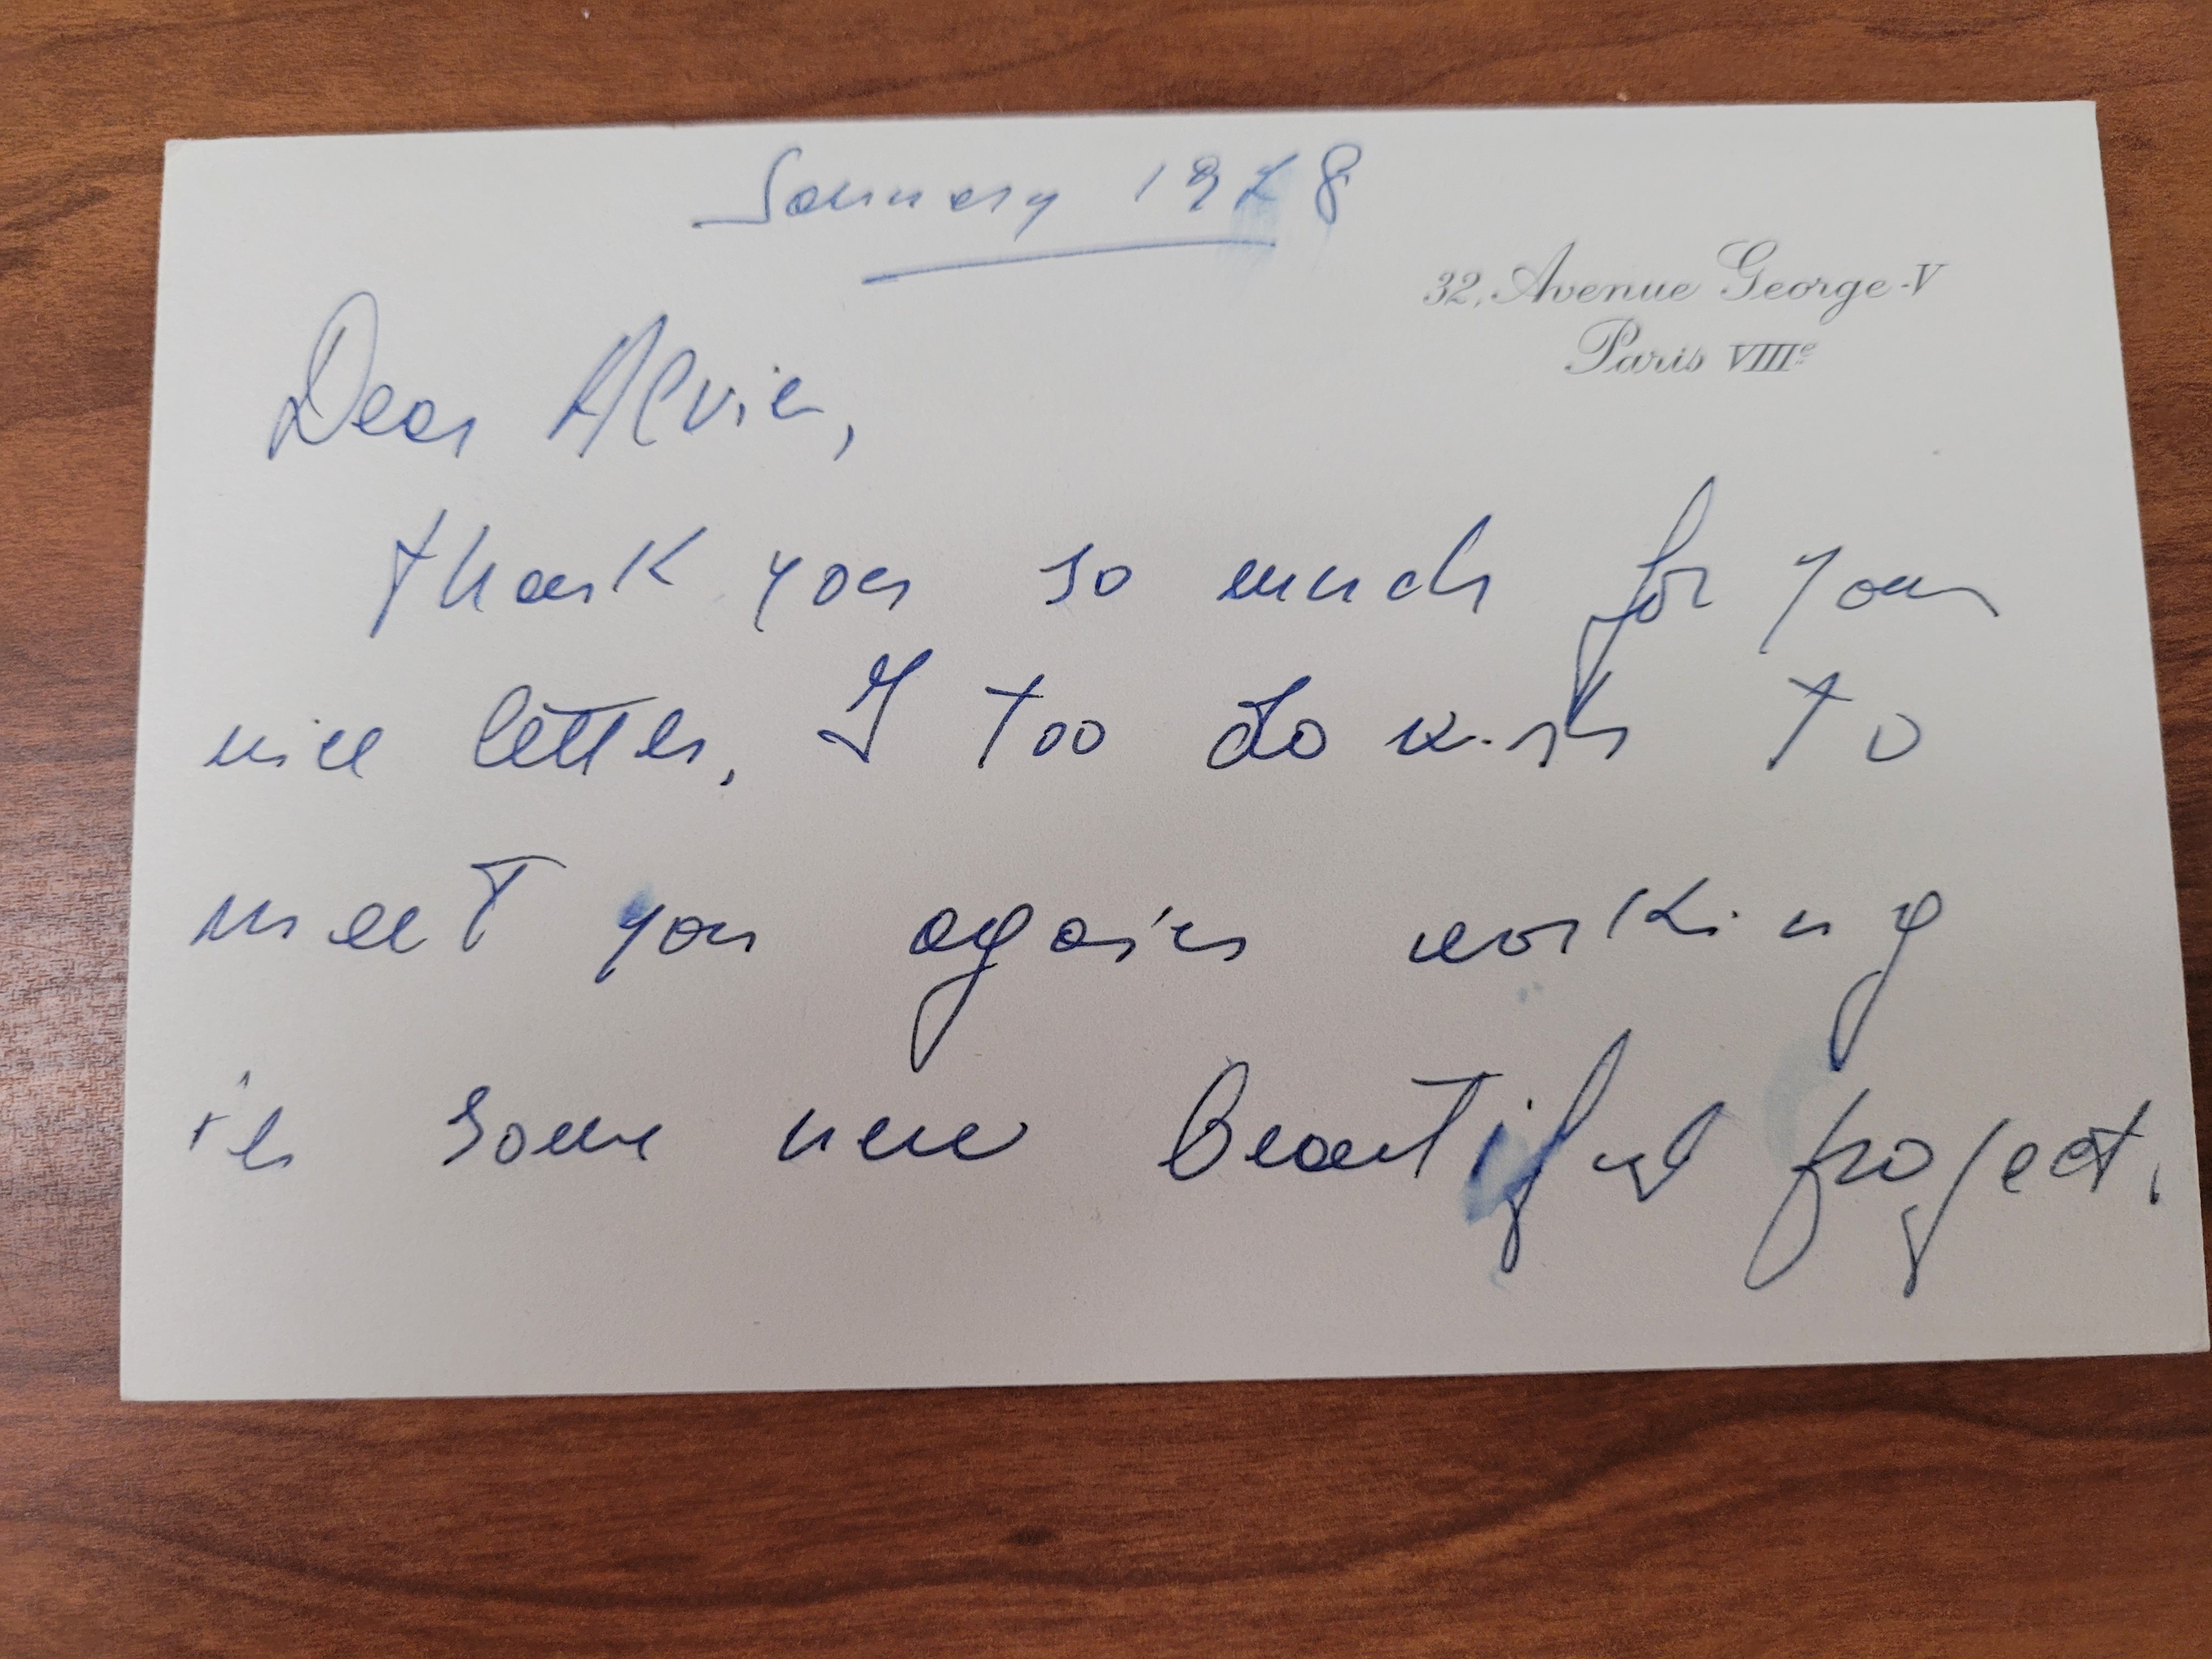 January 1978
32, Avenue George-V
Paris VIIIe
Dear Alvin,
thank you so much for your
nice letter. I too do wish to
meet you again working
in some new beautiful project.